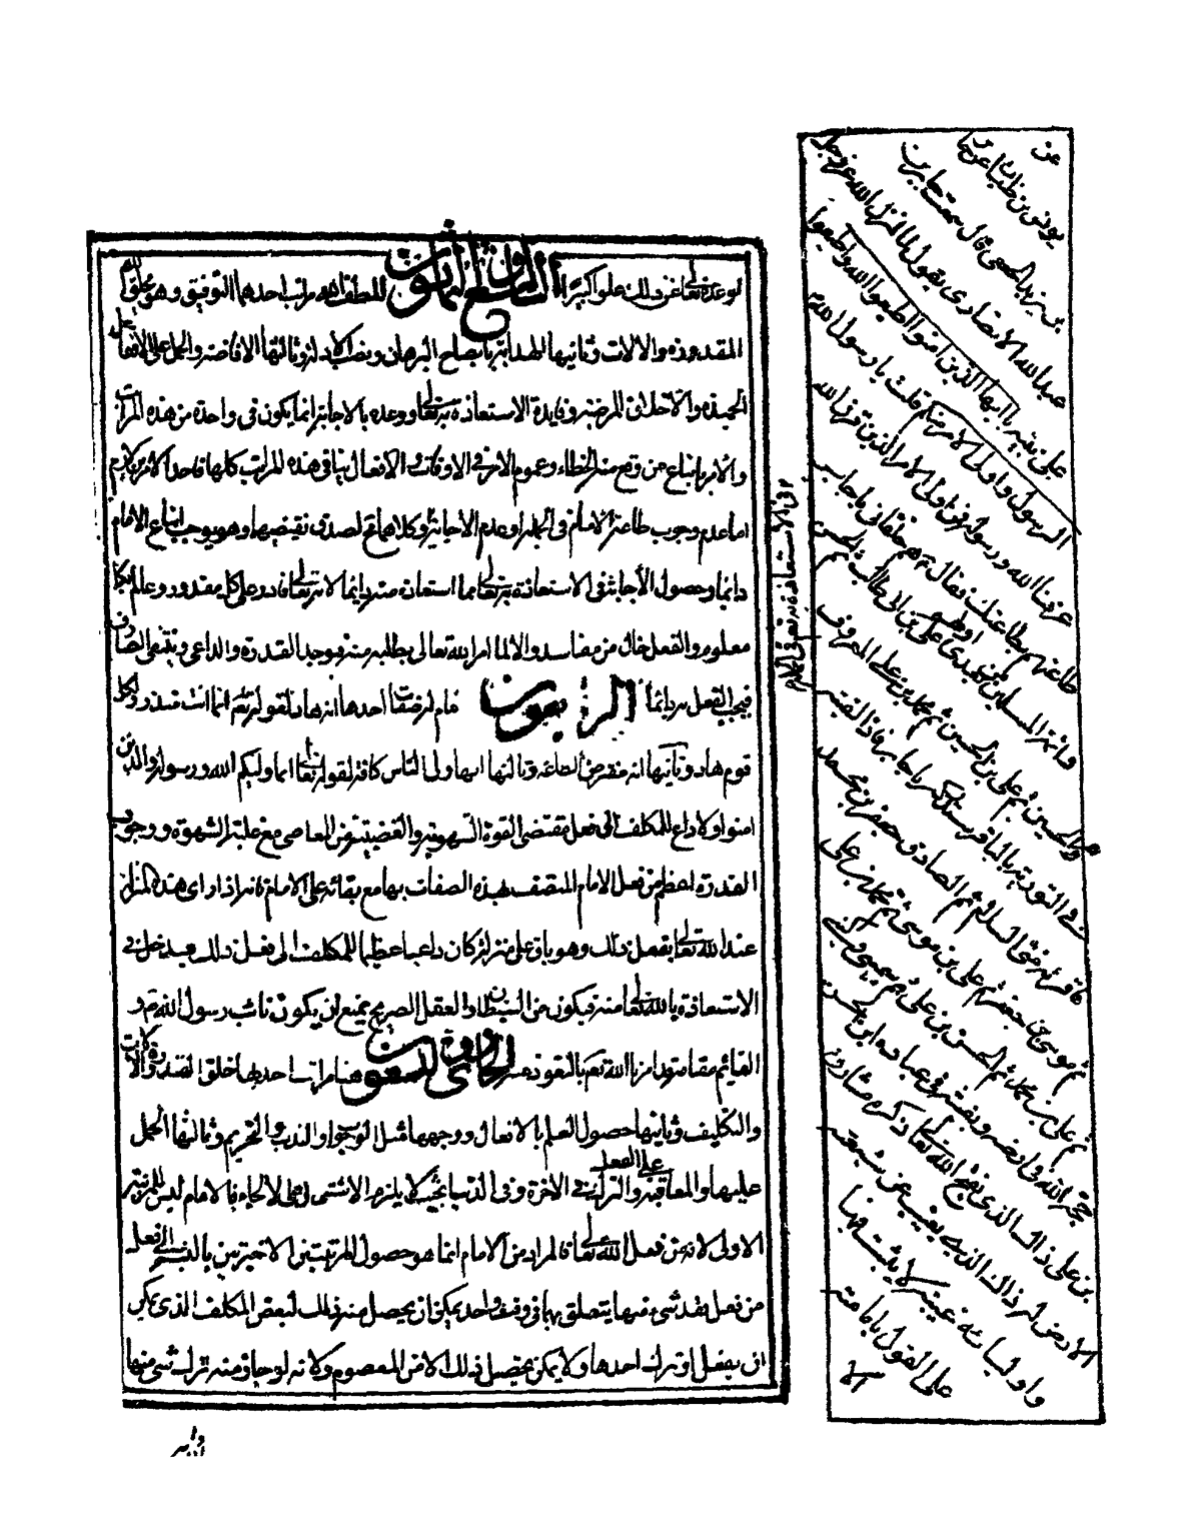 لوعده تعالى عن ذلك علوا كبيرا التاسع والثمانون للطف الله مراتب احدها التوفيق وهو بخلق
المقدورة والالات وثانيها الهداية بايضاح البرهان ونصب الأدلة وثالثها الافاضة والحمل على الافعال
الحميدة والاخلاق المرضية وفايدة الاستعاذة به تعالى ووعده بالاجابة انما يكون فى واحدة من هذه المراتب
والأمر باتباع من وقع منه الخطاء وعموم الامر فى الاوقات والافعال ينافى هذه المراتب كلها فاحد الامرين لازم
اما عدم وجوب طاعة الامام فى الجملة او عدم الاجابة وكلاهما لصدق نقيضيهما وهو يوجب اتباع الامام
دائما وحصول الأجابة فى الاستعاذة به تعالى مما استعاذه منه دايما لانه تعالى قادر على كل مقدور وعالم بكل
معلوم والفعل خال من مفاسد والا لما امر الله تعالى بطلبه منه فوجد القدرة والداعى وينتفى الصارف
فيجب الفعل دايما التسعون الامام له صفات احدها انه هاد لقوله تعالى انما انت منذر ولكل
قوم هاد وثانيها انه مفترض الطاعة وثالثها انه اولى الناس كافة لقوله تعالى انما وليكم الله ورسوله والذين
امنوا ولا داع للمكلف الى فعل مقتضى القوة الشهوية والغضبية من المعاصى مع غلبة الشهوة ووجود
القدرة اعظم من فعل الامام المتصف بهذه الصفات بها مع بقائه على الامامة فانه اذا راى هذه المنزلة
عند الله تعالى يفعل ذلك وهو باق على منزلته كان داعيا عظيما للمكلف الى فعل ذلك فيدخل فى
الاستعاذة بالله تعالى منه فيكون من الشيطان والعقل الصريح يمنع ان يكون نائب رسول الله ص و
القائم مقامه امرنا الله تعم بالتعوذ منه الحادى والتسعون هنا مراتب احدها خلق القدرة والالات
والتكليف وثانيها حصول العلم بالافعال ووجهها مثل الوجوب والندب والتحريم وثالثها الحمل
على الفعل
عليها والمعاقبة والترك فى الاخرة وفى الدنيا بحيث لا يلزم الانتهى الى الالجاء فالامام ليس للمرتبة
الاولى لانه من فعل الله تعالى فالمراد من الامام انما هو حصول المرتبتين الاخيرتين بالنسبة الى فعل
من فعل بعد شىء منها يتعلق بها فى وقت واحد يمكن ان يحصل منه ذلك لبعض المكلف الذى يمكن
ان يفعل او ترك احدها ولا يمكن تحصيل ذلك الا من المعصوم ولانه لو جاز منه ترك شىء منها
عن
يونس بن ظبيان عن جابر
بن يزيد الجعفى قال سمعت جابر بن
عبد الله الانصارى يقول لما انزل الله عز وجل
على نبيه يا ايها الذين امنوا اطيعوا الله واطيعوا
الرسول واولى الامر منكم قلت يا رسول الله
عرفنا الله ورسوله فمن اولى الامر الذين قرن الله
طاعتهم بطاعتك فقال هم خلفائى يا جابر
وائمة المسلمين من بعدى اولهم على بن ابى طالب ثم الحسن
والحسين ثم على بن الحسين ثم محمد بن على المعروف
فى التورية بالباقر ستدركه يا جابر فاذا لقيته
فاقرئه منى السلام ثم الصادق جعفر بن محمد
ثم موسى بن جعفر ثم على بن موسى ثم محمد بن على
ثم على بن محمد ثم الحسن بن على ثم سميى وكنيى
حجة الله فى ارضه وبقيته فى عباده ابن الحسن
بن على ذاك الذى يفتح الله تعالى ذكره مشارق
الارض ذاك الذى يغيب عن شيعته
واوليائه غيبة لا يثبت فيها
على القول بامامته
الا